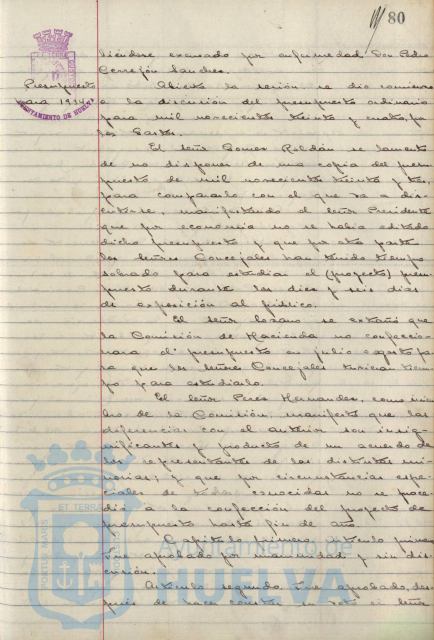 80
biéndose excusado por enfermedad Don Pedro
Cerrejón Sánchez.
Presupuesto
para 1934
AYUNTAMIENTO DE HUELVA
Abierta la sesión, se dio comienzo
a la discusión del presupuesto ordinario
para mil novecientos treinta y cuatro, por
los Gastos.
El señor Gómez Roldán se lamenta
de no disponer de una copia del presu-
puesto de mil novecientos treinta y tres,
para compararlo con el que va a dis-
cutirse, manifestando el señor Presidente
que por economía no se había editado
dicho presupuesto y que por otra parte
los señores Concejales han tenido tiempo
sobrado para estudiar el (proyecto) presu-
puesto durante los diez y seis días
de exposición al público.
El señor Lozano se extrañó que
la Comisión de Hacienda no confeccio-
nara el presupuesto en julio agosto pa
ra que los señores Concejales tuvieran tiem-
po para estudiarlo.
El señor Pérez Hernández, como miem
bro de la Comisión, manifestó que las
diferencias con el anterior son insig-
nificantes y producto de un acuerdo de
los representantes de las distintas mi-
norías; y que por circunstancias espe-
ciales de todos conocidas no se proce-
dió a la confección del proyecto de
presupuesto hasta fin de año.
Capítulo primero. Artículo primero
Fue aprobado por unanimidad y sin dis-
cusión.
Artículo segundo. Fue aprobado, des-
pués de hacer constar su voto el señor
PORTUS MARIS ET TERRAE
Ayuntamiento de
HUELVA